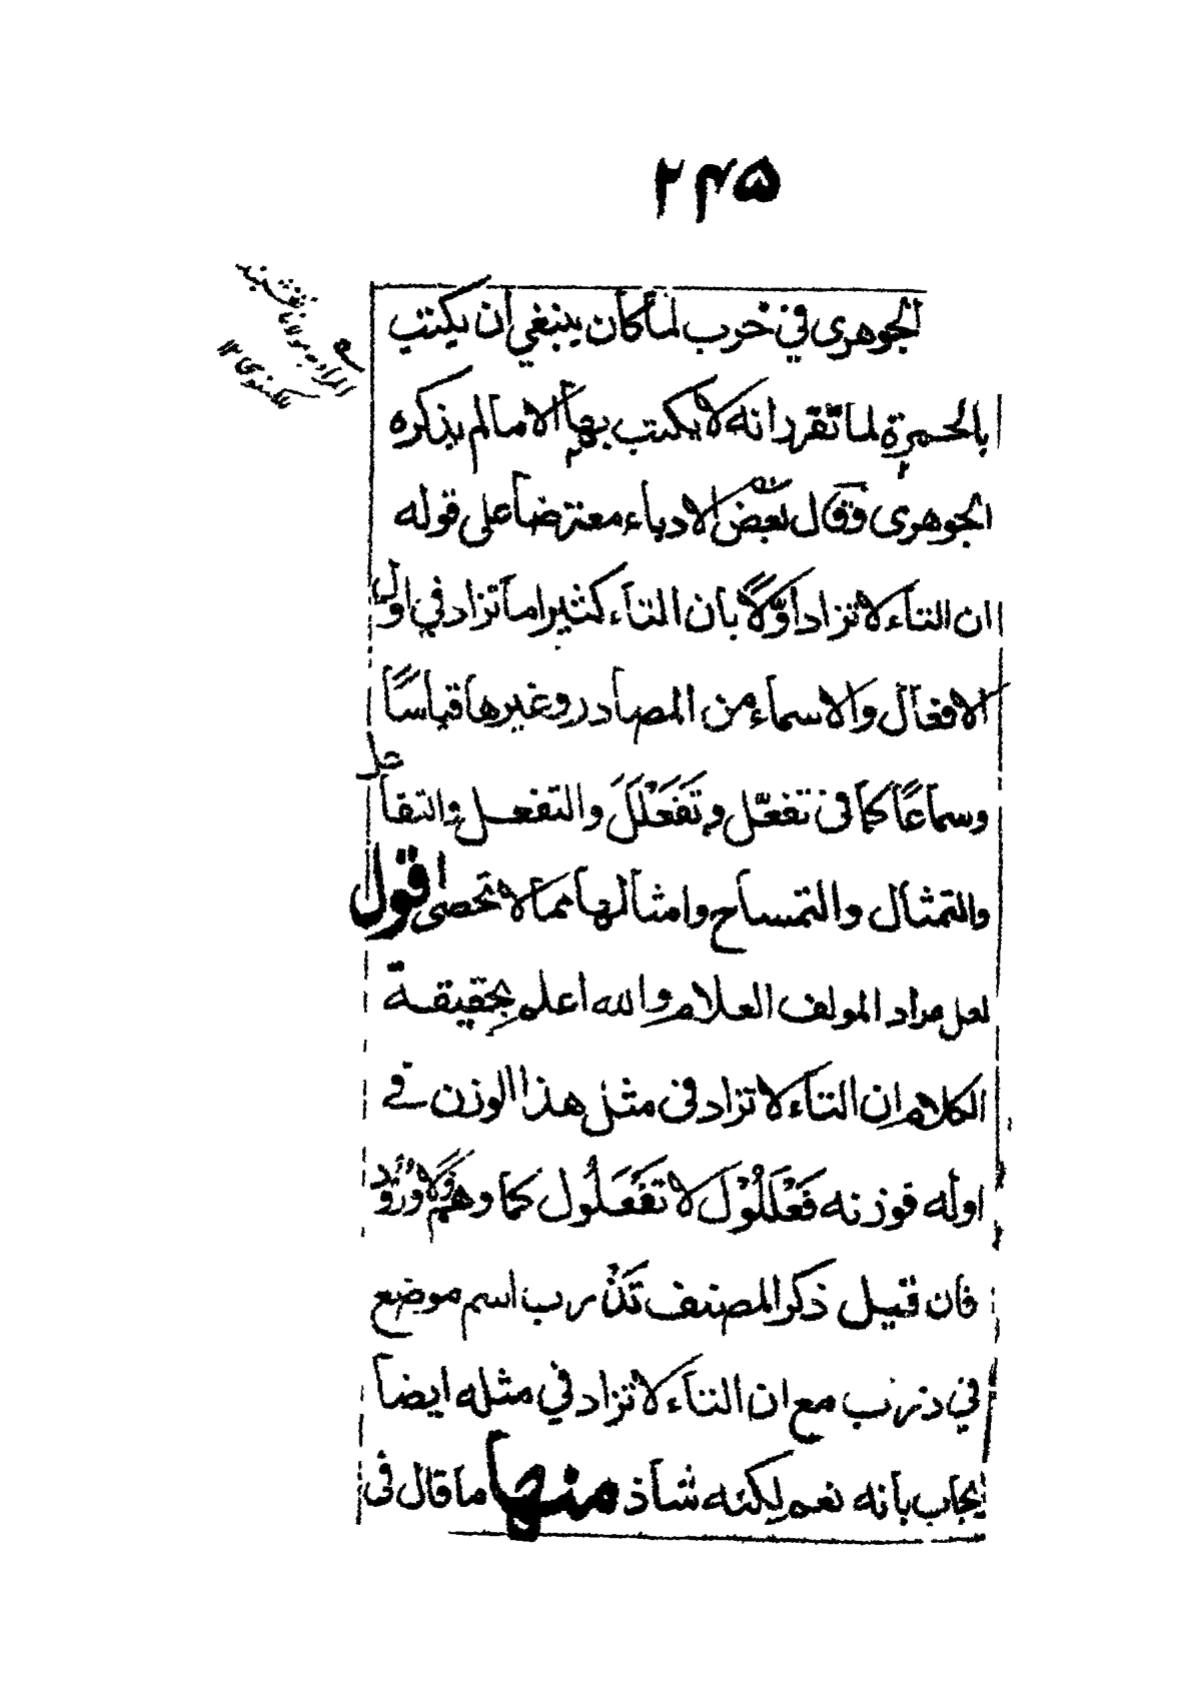 ۲۴۵
الجوهرى في خرب لما كان ينبغي ان يكتب
بالحمرة لما تقرر انه لا يكتب بها الا ما لم يذكره
الجوهرى وقال بعض الادباء معترضا على قوله
ان التاء لا تزاد اوّلًا بان التاء كثيرا ما تزاد في اول
الافعال والاسماء من المصادر وغيرها قياسًا
وسماعًا كما فى تفعّل وتَفَعْلَلَ والتفعل والتفاعل
والتمثال والتمساح وامثالها مما لا تحصى اقول
لعل مراد المولف العلام والله اعلم بحقيقة
الكلام ان التاء لا تزاد فى مثل هذا الوزن فے
اوله فوزنه فَعْلَلُوْل لا تَفْعَلُول كما وهم فلا ورود
فان قيل ذكر المصنف تَذْرب اسم موضع
في ذرب مع ان التاء لا تزاد في مثله ايضا
يجاب بانه نعم لكنه شاذ منها ما قال فى
المراد به مولانا نقشبند
لكهنوى ۱۲